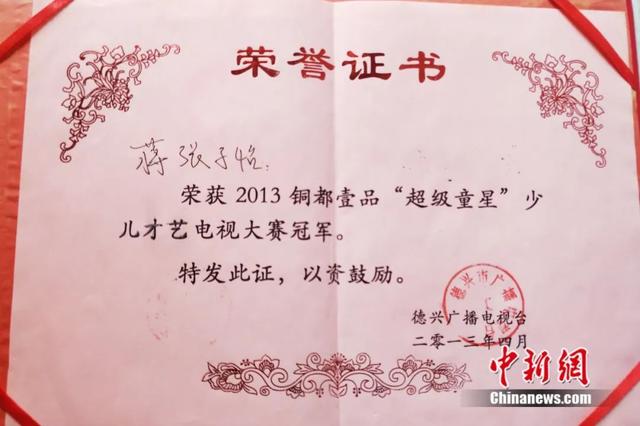 荣誉证书
蒋张子怡：
荣获 2013 铜都壹品“超级童星”少
儿才艺电视大赛冠军。
特发此证，以资鼓励。
德兴市广播
德兴广播电视台
二零一三年四月
中新網
Chinanews.com